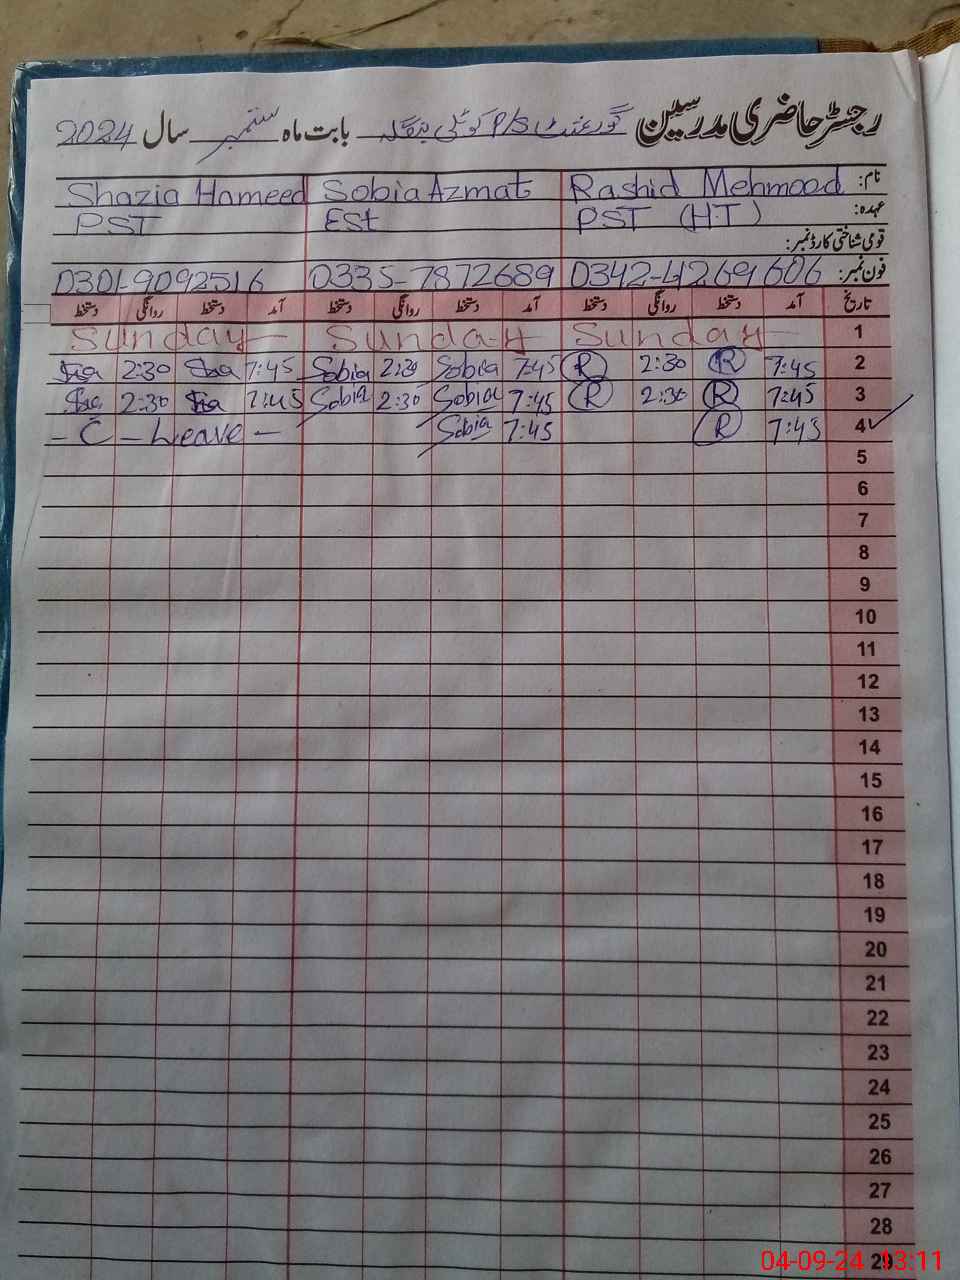 رجسٹر حاضری مدرسین گورنمنٹ P/S کوٹلی بابت ماہ ستمبر سال 2024
نام: Rashid Mehmood Sobia Azmat Shazia Hameed
عہدہ: PST (H.T) ESt PST
قومی شناختی کارڈ نمبر:
فون نمبر: 0342-4269606 0335-7872689 0301-9092516
تاریخ آمد دستخط روانگی دستخط آمد دستخط روانگی دستخط آمد دستخط روانگی دستخط
1 Sunday Sunday Sunday
2 7:45 R 2:30 R 7:45 Sobia 2:30 Sobia 7:45 2:30
3 7:45 R 2:30 R 7:45 Sobia 2:30 Sobia 7:45 2:30
4 7:45 R 7:45 Sobia - C - Leave -
5
6
7
8
9
10
11
12
13
14
15
16
17
18
19
20
21
22
23
24
25
26
27
28
29
04-09-24 13:11